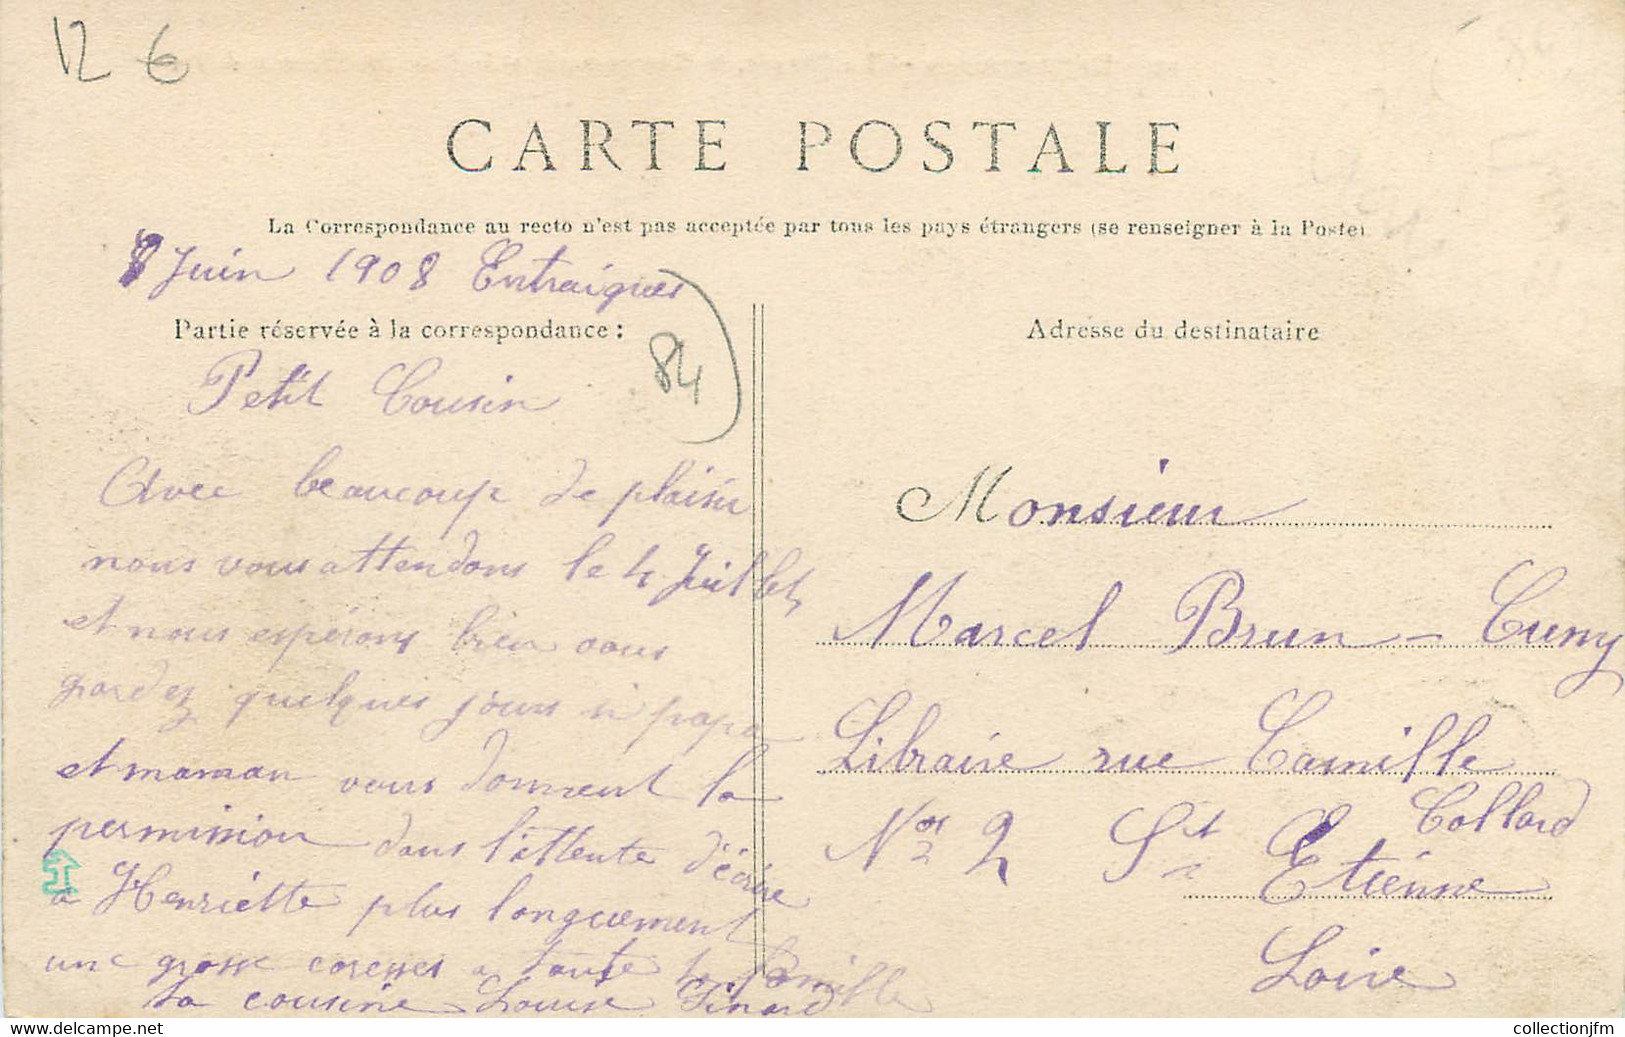 12 €
CARTE POSTALE
La Correspondance au recto n'est pas acceptée par tous les pays étrangers (se renseigner à la Poste)
8 Juin 1908 Entraigues
Partie réservée à la correspondance :
84
Petit Cousin
Avec beaucoup de plaisir
nous vous attendons le 4 Juillet
et nous espérons bien vous
gardez quelques jours si papa
et maman vous donnent la
permission dans l'attente d'écrire
à Henriette plus longuement
une grosse caresses a toute la famille
ta cousine Louise Sinard
Adresse du destinataire
Monsieur
Marcel Brun - Cuny
Libraire rue Camille
Collard
Nos 2 St Etienne
Loire
www.delcampe.net
collectionjfm